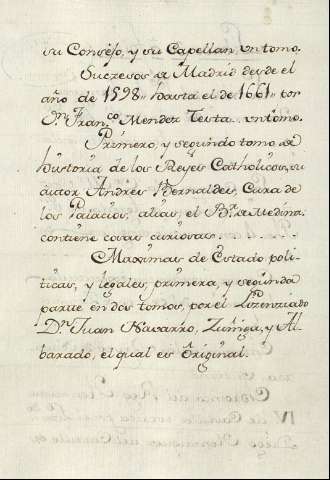 su Consejo, y su Capellan, un tomo.
Sucesos de Madrid desde el
año de 1598 hasta el de 1661 por
Dn. Fran.co Mendez Testa. un tomo.
Primero, y segundo tomo de
Historia de los Reyes Catholicos, su
autor Andres Bernaldes, Cura de
los Palacios, alias, el Br. de Medina.
contiene cosas curiosas.
Maximas de Estado poli-
ticas, y legales, primera, y segunda
parte en dos tomos, por el Lizenziado
Dn. Juan Navarro, Zuñiga, y Al-
barado, el qual es Original.